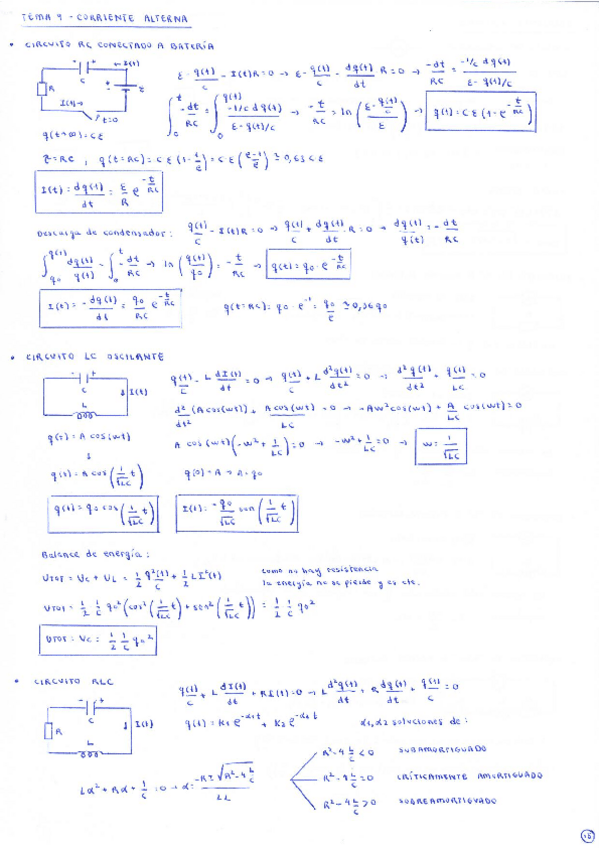 TEMA 9 - CORRIENTE ALTERNA
• CIRCUITO RC CONECTADO A BATERÍA
ε - q(t)/C - I(t)R = 0 → ε - q(t)/C - dq(t)/dt R = 0 → -dt/RC = -1/C dq(t) / ε - q(t)/C
C I(t) R ε I(t) t=0
∫₀ᵗ -dt/RC = ∫₀^q(t) -1/C dq(t) / ε - q(t)/C → -t/RC = ln((ε - q(t)/C)/ε) → q(t) = Cε(1 - e^(-t/RC))
q(t→∞) = Cε
τ = RC , q(t=RC) = Cε(1 - 1/e) = Cε((e-1)/e) ≅ 0,63 Cε
I(t) = dq(t)/dt = ε/R e^(-t/RC)
Descarga de condensador: q(t)/C - I(t)R = 0 → q(t)/C + dq(t)/dt R = 0 → dq(t)/q(t) = -dt/RC
∫q₀^q(t) dq(t)/q(t) = ∫₀ᵗ -dt/RC → ln(q(t)/q₀) = -t/RC → q(t) = q₀ · e^(-t/RC)
I(t) = -dq(t)/dt = q₀/RC e^(-t/RC) q(t=RC) = q₀ · e⁻¹ = q₀/e ≅ 0,36 q₀
• CIRCUITO LC OSCILANTE
q(t)/C - L dI(t)/dt = 0 → q(t)/C + L d²q(t)/dt² = 0 → d²q(t)/dt² + q(t)/LC = 0
C I(t) L
d²/dt² (A cos(wt)) + A cos(wt)/LC = 0 → -Aw² cos(wt) + A/LC cos(wt) = 0
q(t) = A cos(wt) A cos(wt)(-w² + 1/LC) = 0 → -w² + 1/LC = 0 → w = 1/√LC
↓
q(t) = A cos(1/√LC t) q(0) = A → A = q₀
q(t) = q₀ cos(1/√LC t) I(t) = -q₀/√LC sen(1/√LC t)
Balance de energía:
UTOT = UC + UL = 1/2 q²(t)/C + 1/2 LI²(t) como no hay resistencia
la energía no se pierde y es cte.
UTOT = 1/2 1/C q₀² (cos²(1/√LC t) + sen²(1/√LC t)) = 1/2 1/C q₀²
UTOT = UC = 1/2 1/C q₀²
• CIRCUITO RLC
q(t)/C + L dI(t)/dt + RI(t) = 0 → L d²q(t)/dt + R dq(t)/dt + q(t)/C = 0
C R I(t) L
q(t) = K₁e^(-α₁t) + K₂e^(-α₂t) α₁,α₂ soluciones de:
R² - 4 L/C < 0 SUBAMORTIGUADO
Lα² + Rα + 1/C = 0 → α = (-R ± √(R² - 4 L/C))/2L
R² - 4 L/C = 0 CRÍTICAMENTE AMORTIGUADO
R² - 4 L/C > 0 SOBREAMORTIGUADO